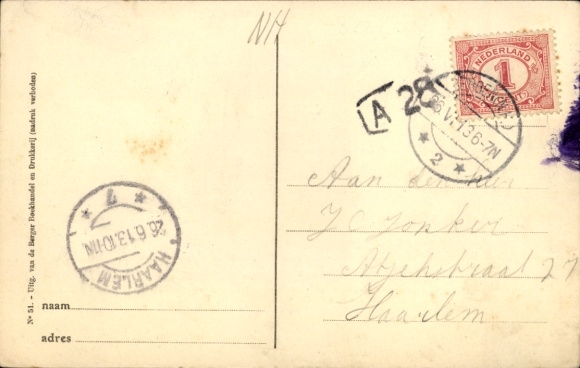 NH
NEDERLAND
1
A 28
26.VI.13 6-7N
2
Aan den heer
J C Jonker
Atjehstraat 27
Haarlem
7
26.6.13.10-11N
HAARLEM
naam
adres
No 51. - Uitg. van de Berger Boekhandel en Drukkerij (nadruk verboden)